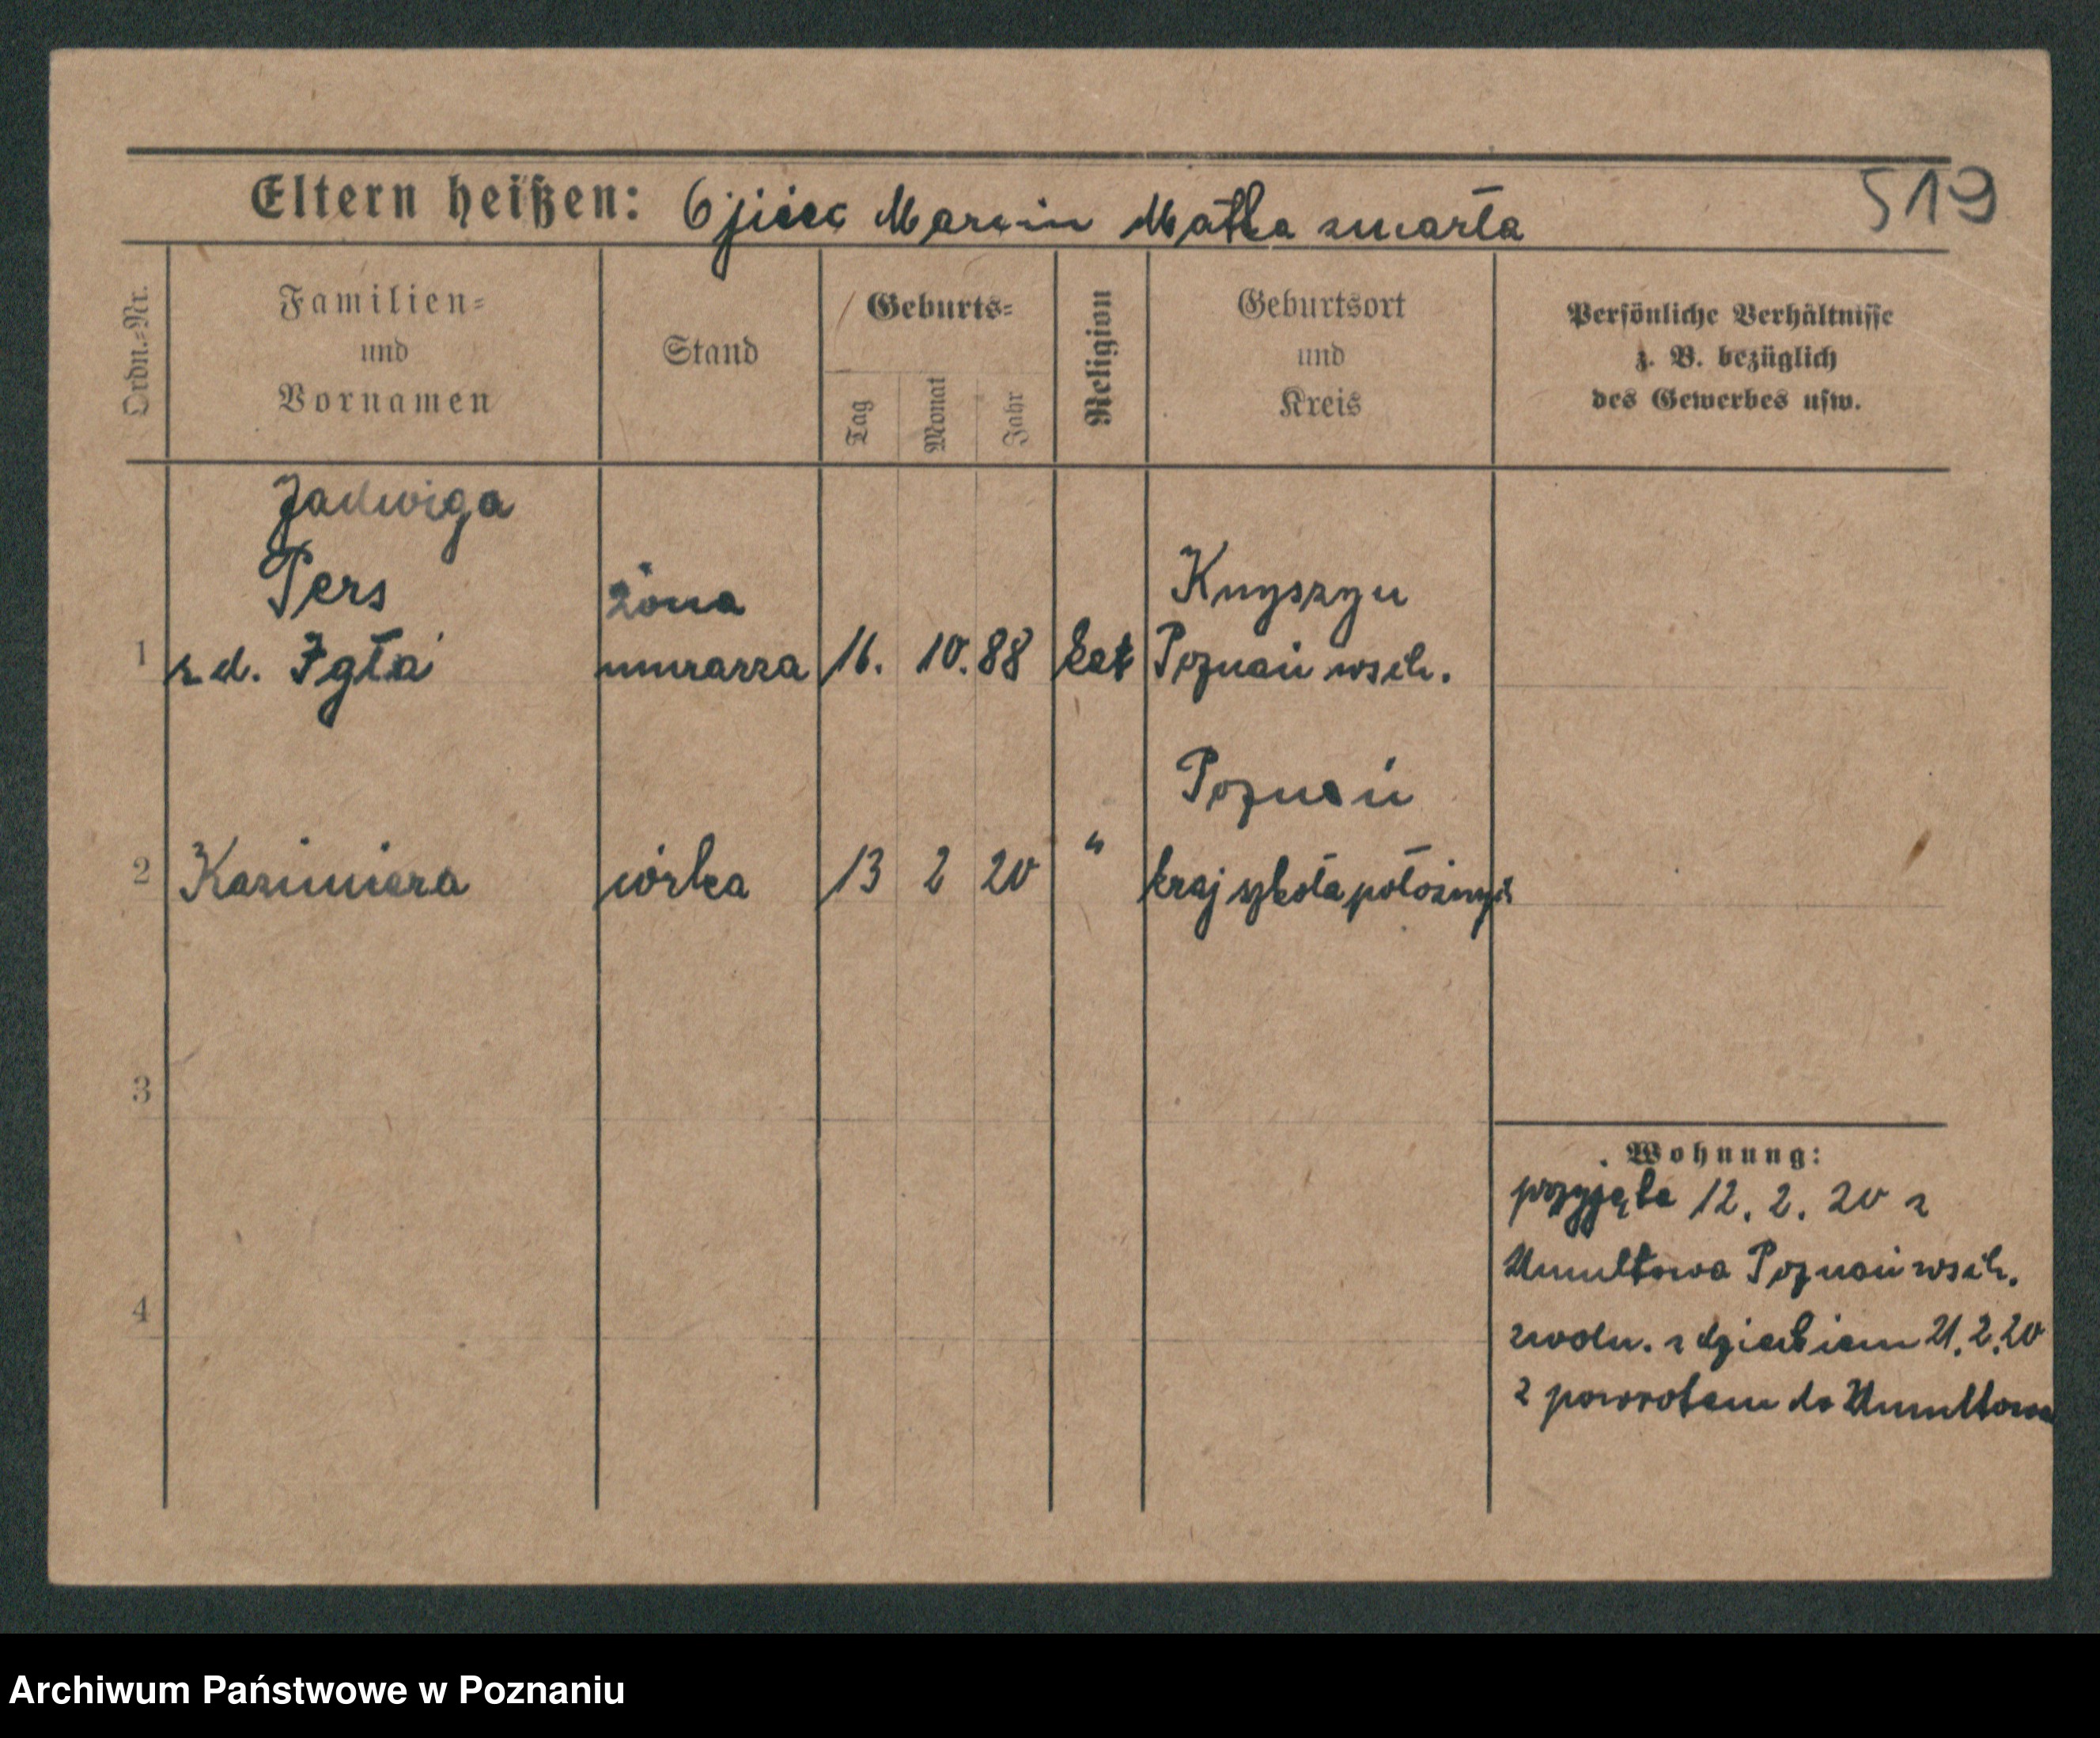 519
Eltern heißen: Ojciec Marcin Matka zmarła
Ordn.-Nr.
Familien-
und
Vornamen
Stand
Geburts-
Tag
Monat
Jahr
Religion
Geburtsort
und
Kreis
Persönliche Verhältnisse
z. B. bezüglich
des Gewerbes usw.
Jadwiga
Pers żona Knyszyn
1 z d. Igła murarza 16. 10. 88 kat Poznań wsch.
Poznań
2 Kazimiera córka 13 2 20 " kraj szkoła położnych
3
Wohnung:
przyjęta 12. 2. 20 z
Umultowa Poznań wsch.
4
zwoln. z dzieckiem 21. 2. 20
z powrotem do Umultowa
Archiwum Państwowe w Poznaniu